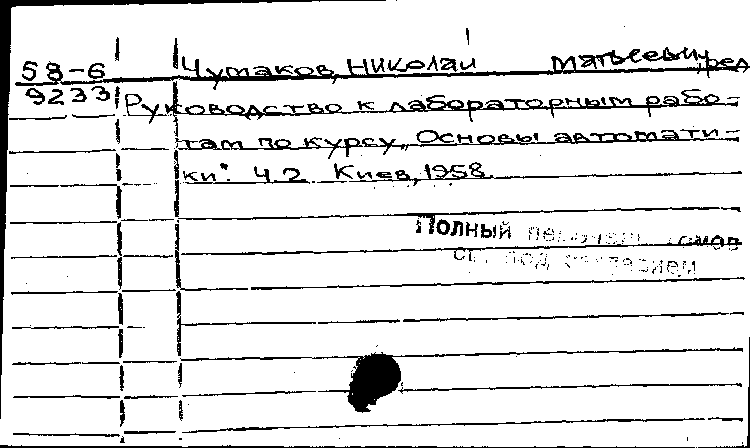 58-6
9233
Чумаков, Николай Матвеевич, ред
Руководство к лабораторным рабо=
там по курсу „Основы автомати=
ки". Ч.2 Киев, 1958.
Полный томов
см. под заглавием